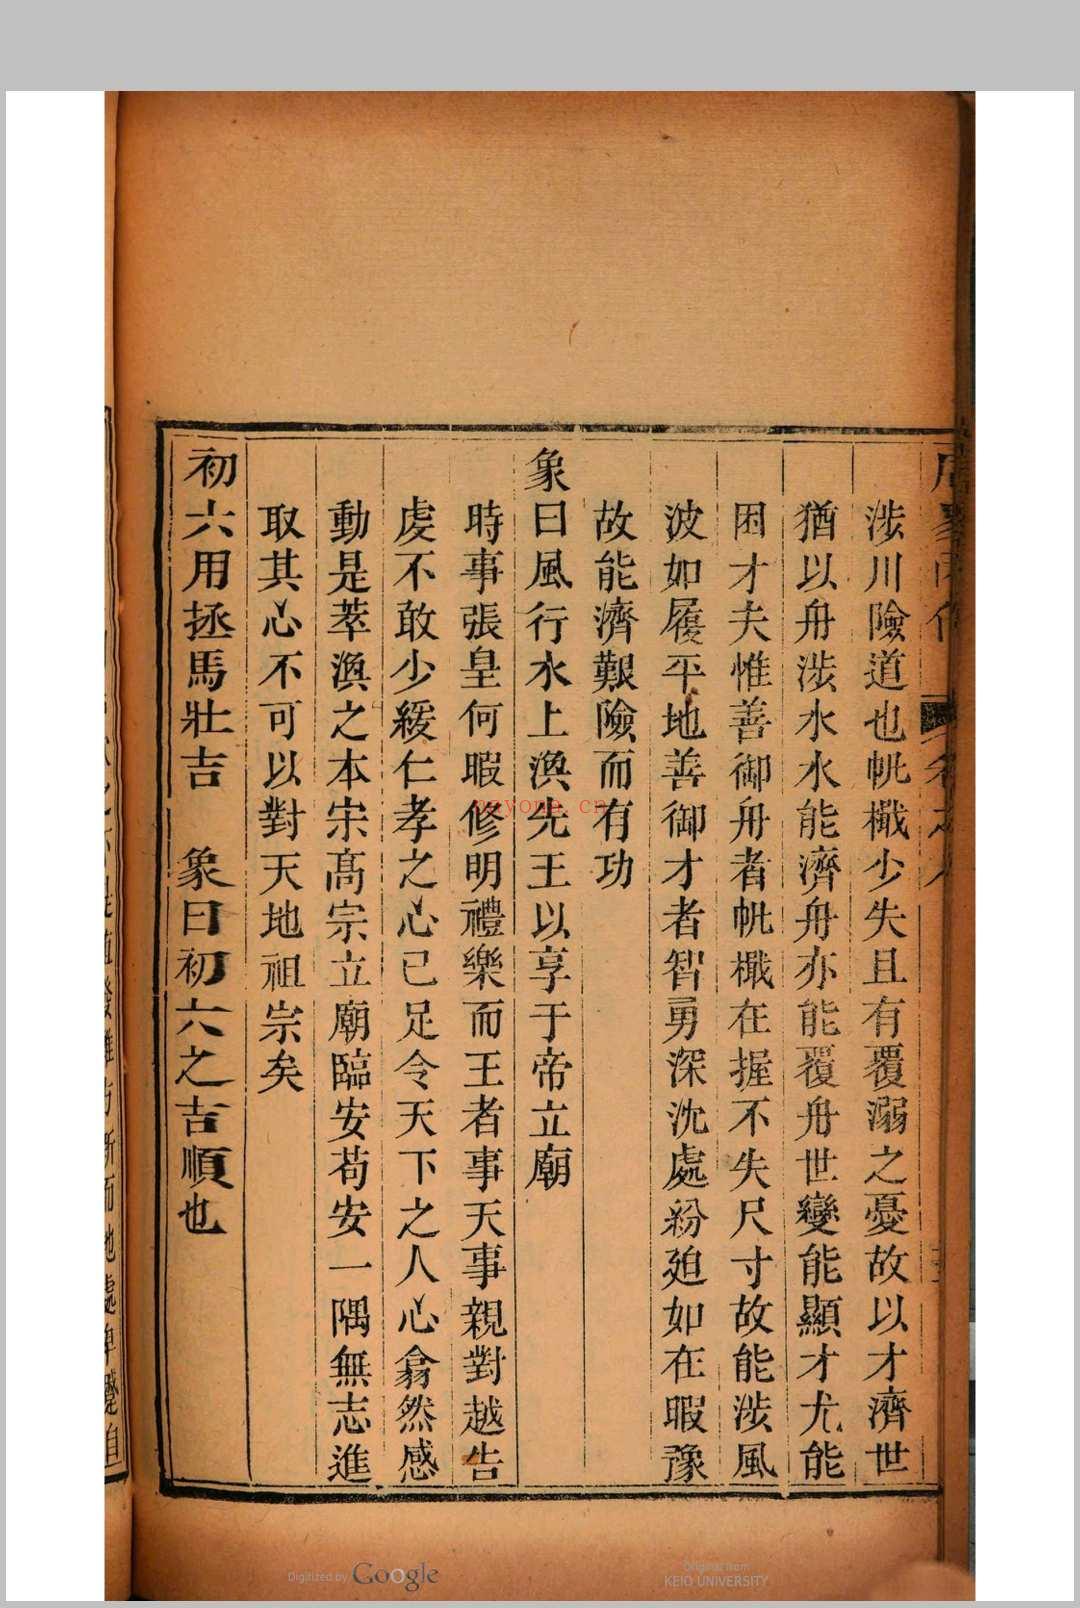 涉川險道也㠶檝少失且有覆溺之憂故以才濟世
猶以舟涉水水能濟舟亦能覆舟世變能顯才尤能
困才夫惟善御舟者㠶檝在握不失尺寸故能涉風
波如履平地善御才者智勇深沈處紛廹如在暇豫
故能濟艱險而有功
象曰風行水上渙先王以享于帝立廟
時事張皇何暇修明禮樂而王者事天事親對越告
虔不敢少緩仁孝之心已足令天下之人心翕然感
動是萃渙之本宋髙宗立廟臨安苟安一隅無志進
取其心不可以對天地祖宗矣
初六用拯馬壯吉　象曰初六之吉順也
onyona.cn
Digitized by Google
Original from
KEIO UNIVERSITY